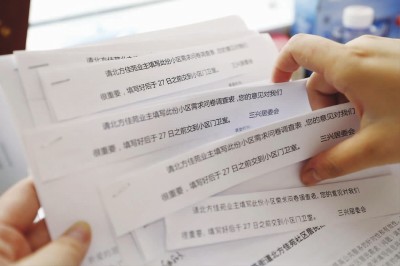 请北方佳苑业主填写此份小区需求问卷调查表，您的意见对我们
很重要，填写好后于 27 日之前交到小区门卫室。 三兴居委会
请北方佳苑业主填写此份小区需求问卷调查表，您的意见对我们
很重要，填写好后于 27 日之前交到小区门卫室。 三兴居委会
请北方佳苑业主填写此份小区需求问卷调查表，您的意见对我们
很重要，填写好后于 27 日之前交到小区门卫室。 三兴居委会
请北方佳苑业主填写此份小区需求问卷调查表，您的意见对我们
很重要，填写好后于 27 日之前交到小区门卫室。 三兴居委会
北方佳苑社区